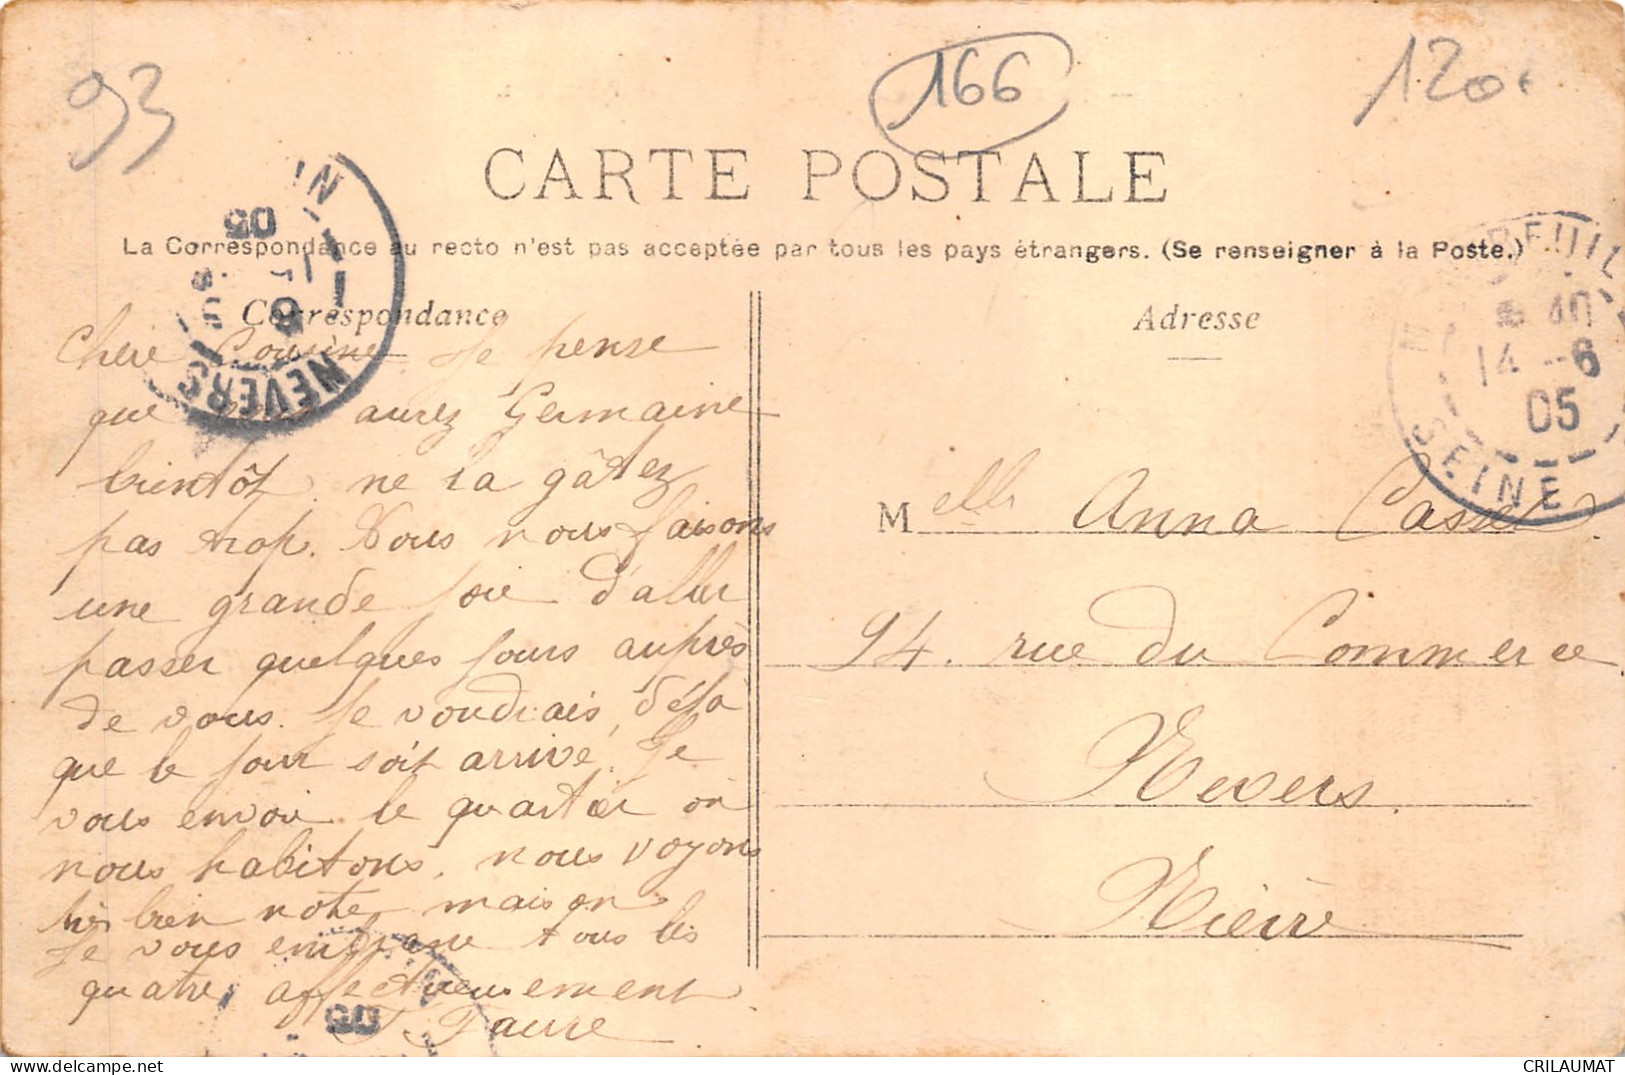 93
166
120€
CARTE POSTALE
La Correspondance au recto n'est pas acceptée par tous les pays étrangers. (Se renseigner à la Poste.)
Correspondance
Chère Cousine Je pense
que vous aurez Germaine
bientôt. ne la gâtez
pas trop. Nous nous faisons
une grande joie d'aller
passer quelques jours auprès
de vous. Je voudrais déjà
que le jour soit arrivé. Je
vous envoie le quartier où
nous habitons, nous voyons
très bien notre maison
Je vous embrasse tous les
quatre, affectueusement
Faure
NEVERS
05
05
Adresse
MONTREUIL
40
14 -6
05
SEINE
Melle Anna Casset
94. rue du Commerce
Nevers.
Nièvre
CRILAUMAT